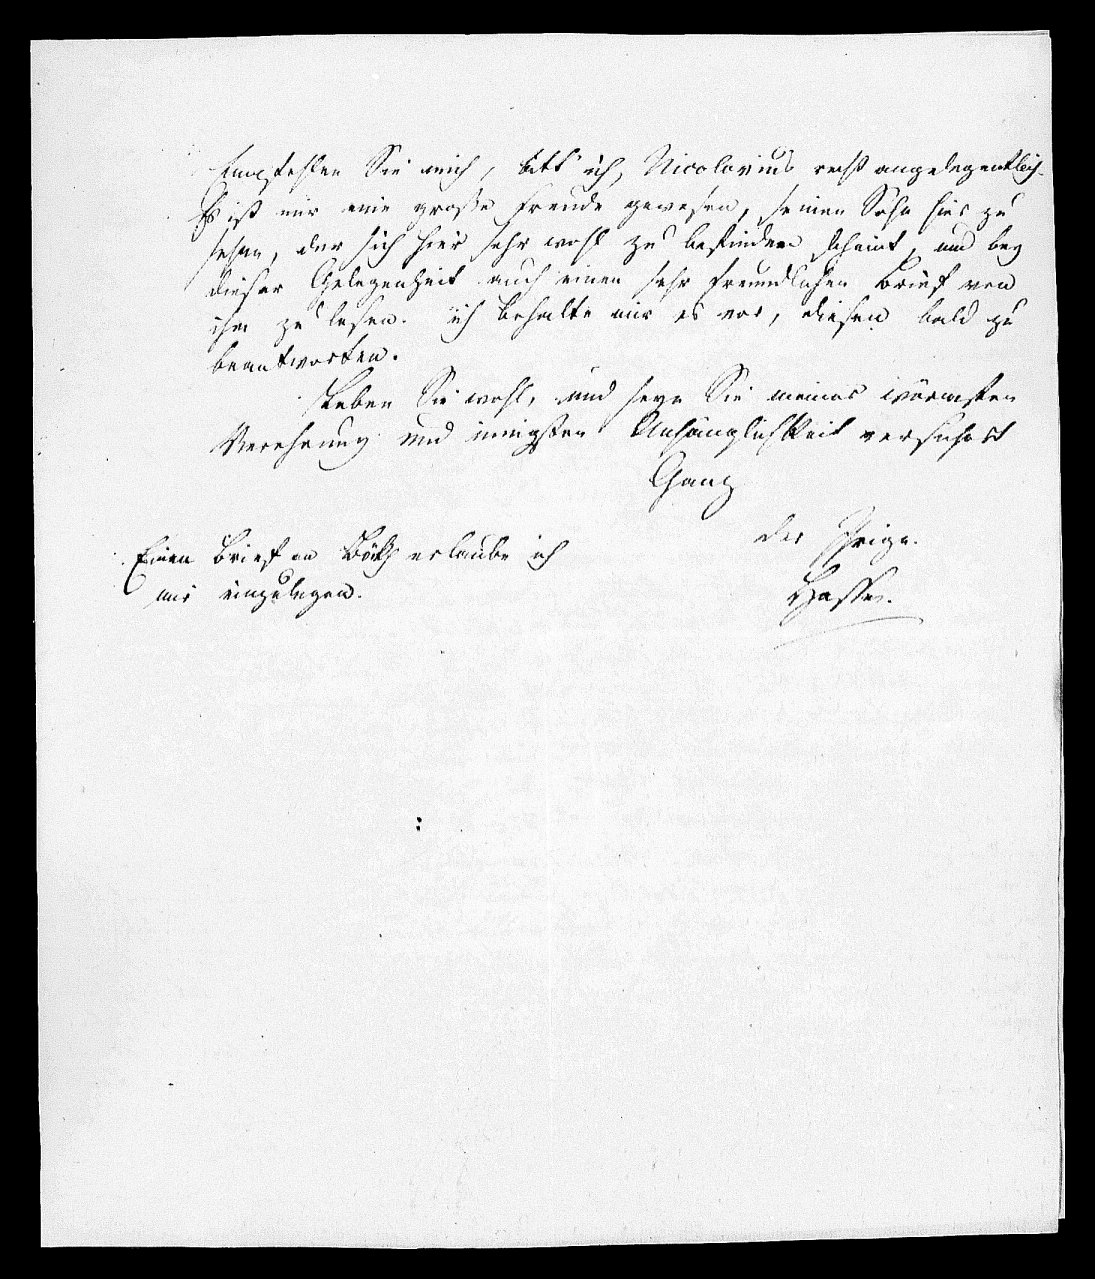 Empfehlen Sie mich, bitt' ich, Nicolovius recht angelegentlich.
Es ist mir eine große Freude gewesen, seinen Sohn hier zu
sehen, der sich hier sehr wohl zu befinden scheint, und bey
dieser Gelegenheit auch einen sehr freundlichen Brief von
ihm zu lesen. ich behalte mir es vor, diesen bald zu
beantworten.
Leben Sie wohl, und seyn Sie meiner wärmsten
Verehrung und innigsten Anhänglichkeit versichert
Ganz
der Ihrige.
Einen Brief an Böckh erlaube ich
mir einzulegen.